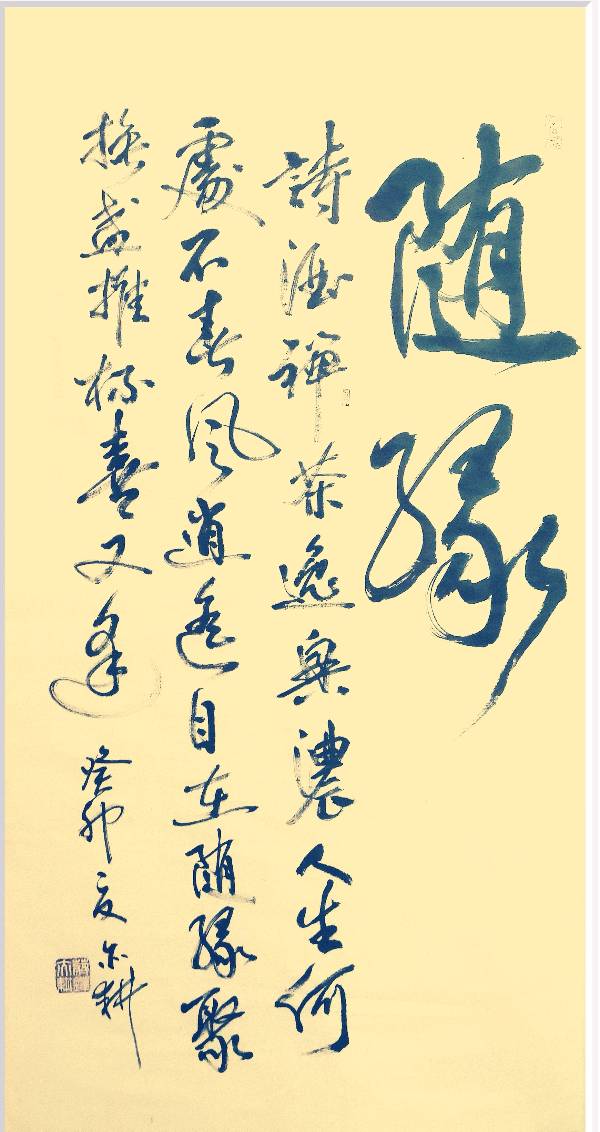 随缘
詩酒禅茶逸興濃人生何
處不春风逍遥自在随缘聚
換盏推杯喜又逢 癸卯夏 尔耕